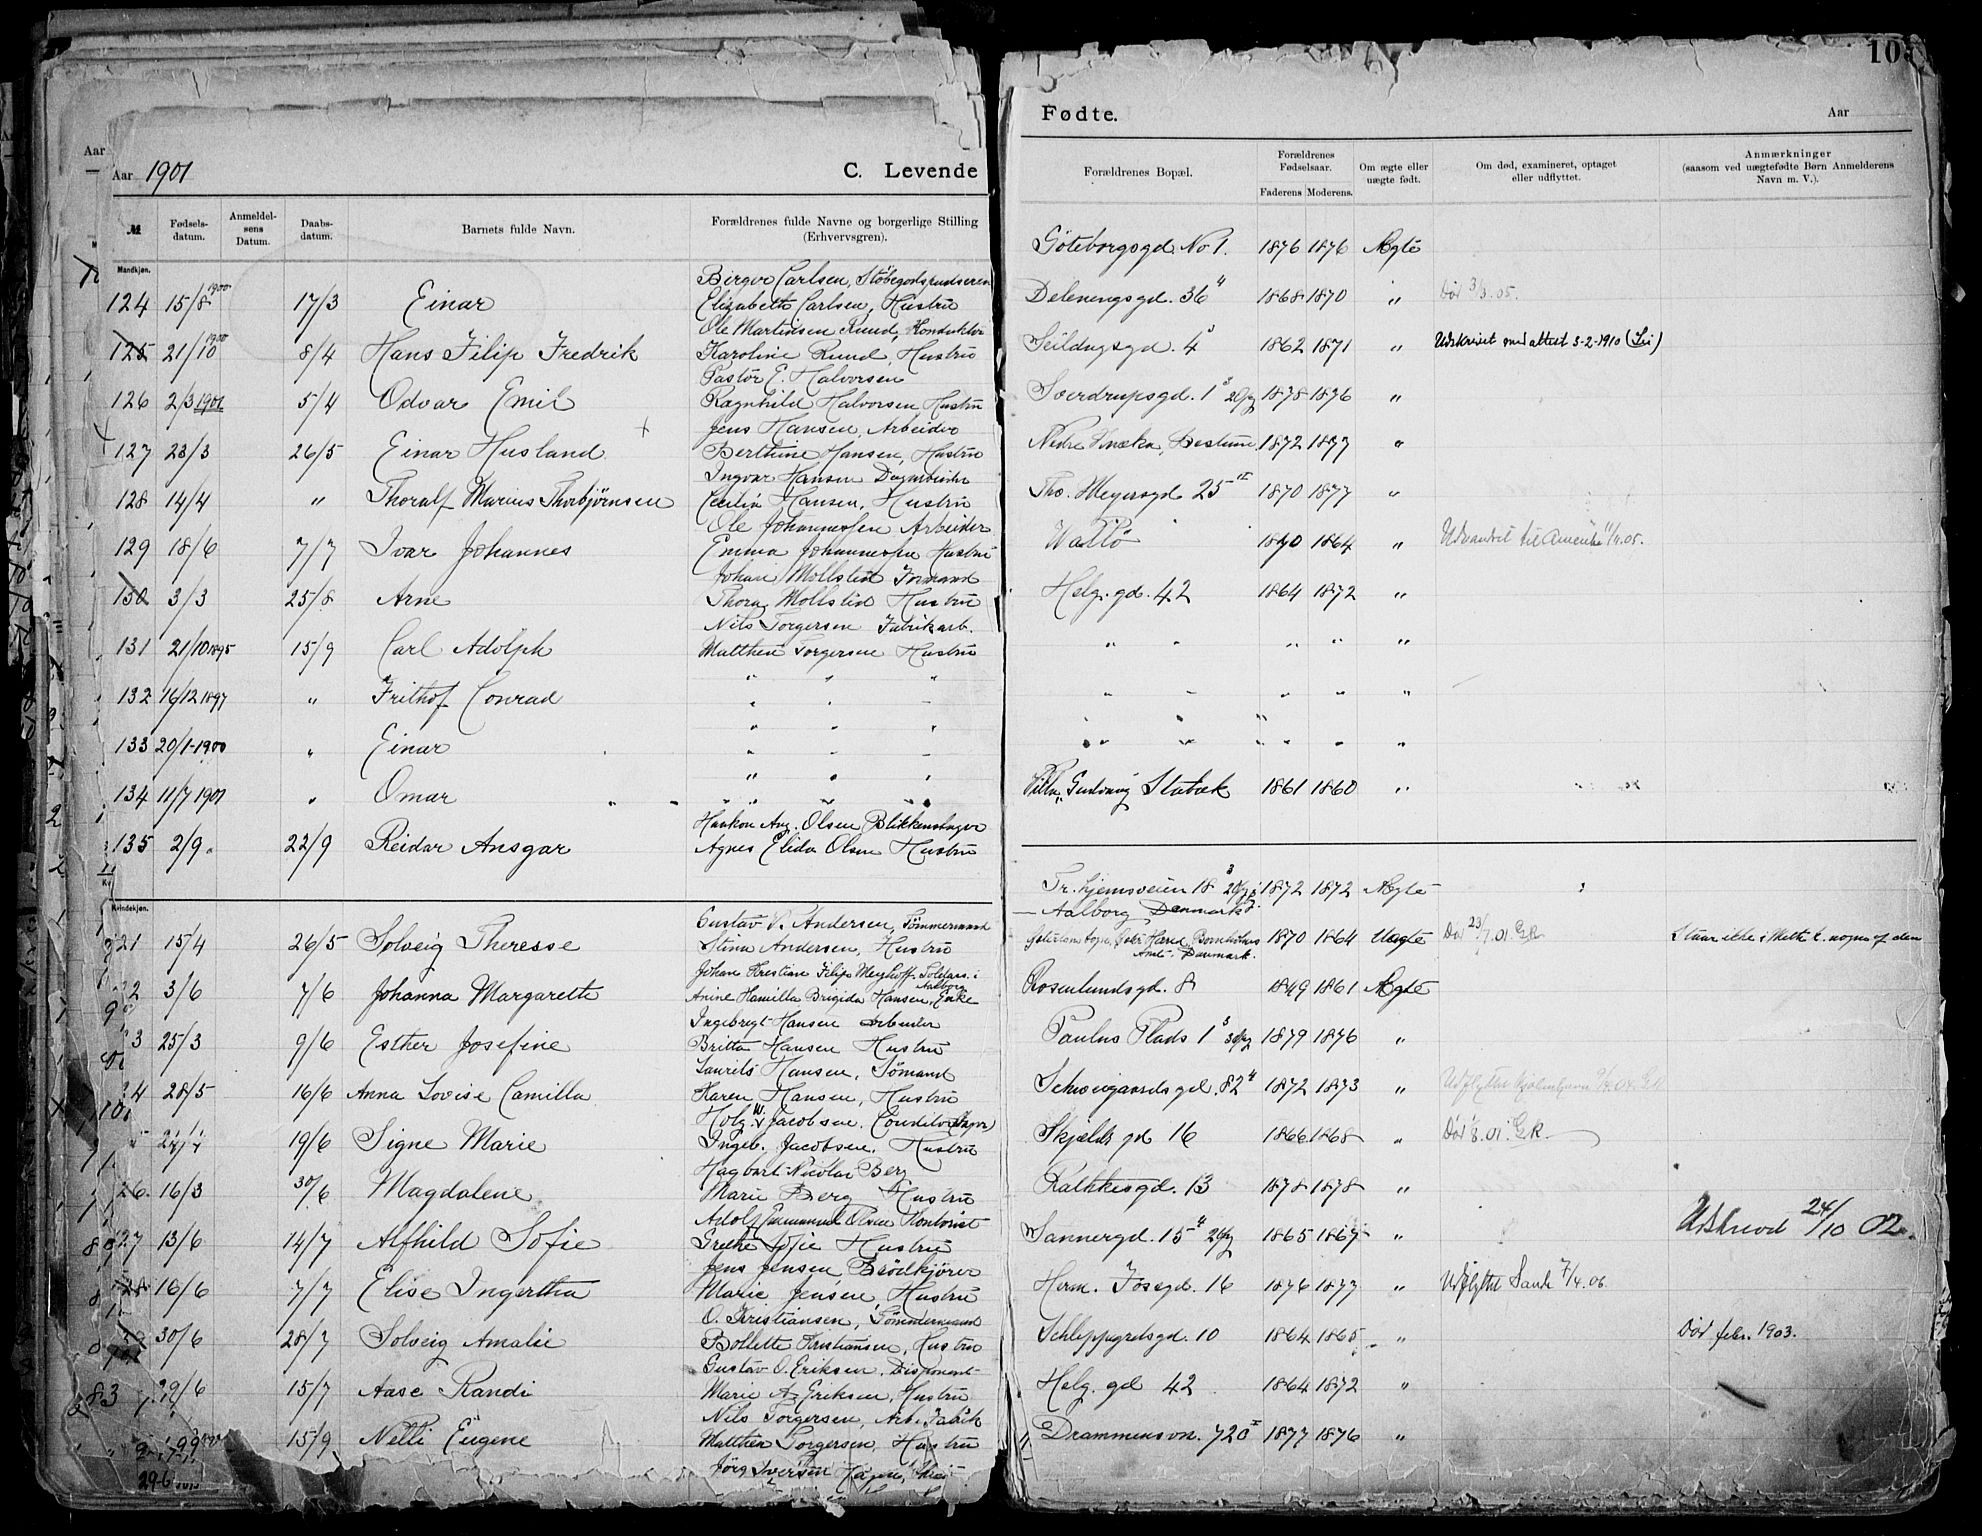 Aar
Aar 1901
C. Levende
№
Fødsels-
datum.
Anmeldel-
sens
Datum.
Daabs-
datum.
Barnets fulde Navn.
Forældrenes fulde Navne og borgerlige Stilling
(Erhvervsgren).
Mandkjøn.
Birger Carlsen, Støbegodspudseren
124 15/8 1900 17/3 Einar Elizabeth Carlsen, Hustru
Ole Martinsen Ruud, Konduktør
125 21/10 1900 8/4 Hans Filip Fredrik Karoline Ruud, Hustru
Pastor E. Halvorsen
126 2/3 1901 5/4 Odvar Emil Ragnhild Halvorsen Hustru
Jens Hansen, Arbeider
127 23/3 26/5 Einar Husland Berthine Hansen, Hustru
Ingvar Hansen Dagarbeider
128 14/4 " Thoralf Marius Thorbjørnsen Cecilia Hansen, Hustru
Ole Johannesen Arbeider
129 18/6 7/7 Ivar Johannes Emma Johannesen Hustru
Johan Mollstad Formand
130 3/3 25/8 Arne Thora Mollstad Hustru
Nils Torgersen Fabrikarb.
131 21/10 1895 15/9 Carl Adolph Matthea Torgersen Hustru
132 16/12 1897 " Frithof Conrad " " "
133 20/1-1900 " Einar " " "
134 11/7 1901 " Omar " " "
Haakon Aug. Olsen Blikkenslager
135 2/9 22/9 Reidar Ansgar Agnes Elida Olsen Hustru
Kvindekjøn.
Gustav V. Andersen, Tømmermand
21 15/4 26/5 Solveig Theresse Stina Andersen, Hustru
Johan Kristian Filip Meyhoff Toldass. i Aalborg
22 3/6 7/6 Johanna Margarethe Anine Hamilla Brigida Hansen, Enke
Ingebregt Hansen Arbeider
23 25/3 9/6 Esther Josefine Britta Hansen Hustru
Laurits Hansen, Sømand
24 28/5 16/6 Anna Lovise Camilla Karen Hansen, Hustru
Holg. W. Jacobsen, Conditor
24/4 19/6 Signe Marie Ingeb. Jacobsen. Hustru
Hagbart Nicolai Berg
26. 16/3 30/6 Magdalene Marie Berg Hustru
Adolf Emmanuel Olsen Kontorist
27 13/6 14/7 Alfhild Sofie Grethe Sofie Hustru
Jens Jensen, Brødkjører
28 16/6 7/7 Elise Ingertha Marie Jensen, Hustru
O. Kristiansen, Tømmermand
29 30/6 28/7 Solveig Amalie Bollette Kristiansen, Hustru
Gustav O. Eriksen, Disponent
29/6 15/7 Aase Randi Marie A. Eriksen, Hustru
Nils Torgersen, Arb. Fabrik
15/9 Nelli Eugene Matthea Torgersen, Hustru
Jørg Iversen
296
Fødte.
Aar
Forældrenes Bopæl.
Forældrenes
Fødselsaar.
Faderens Moderens.
Om ægte eller
uægte født.
Om død, examineret, optaget
eller udflyttet.
Anmærkninger
(saasom ved uægtefødte Børn Anmelderens
Navn m. V.).
Göteborgsgd. No 1. 1876 1876 Ægte
Delenengsgd. 36 4 1868 1870 " Død 3/3. 05.
Seildugsgd. 4 1862 1871 " Udskrivet med attest 3-2-1910
Sverdrupsgd. 1 3 20pg 1878 1876 "
Nedre Knæka, Bestum. 1872 1877 "
Tho. Meyersgd 25 II 1870 1877 "
Wallø 1870 1864 " Udvandret til Amerika 11/4. 05.
Helg. gd. 42 1864 1872 "
" " " " "
" " " " "
" " " " " "
Villa Gudvang Stabæk 1861 1860 "
Tr.hjemsveien 18 3 20pg 1872 1872 Ægte
Aalborg Danmark
Bornholms Amt. Danmark. 1870 1864 Uægte Død 23/7. 01. G.R.
Rosenlundsgd. 8 1849 1861 Ægte
Paulus Plads 1 3 30pg 1879 1876 "
Schweigaardsgd. 82 4 1872 1873 " Udflyttet Kjøbenhavn 04. G.R.
Skjelds gd 16 1866 1868 " Død 1/8. 01. G.R.
Rathkesgd. 13 1878 1878 "
Sannergd. 15 4 20pg 1865 1867 " Udskrevet 24/10 02.
Herm. Fossgd. 16 1876 1877 " Udflyttet Sande 7/4. 06.
Schleppegrelsgd. 10 1864 1865 " Død febr. 1903.
Helg. gd 42 1864 1872 "
Drammensvn. 72 1877 1876 "